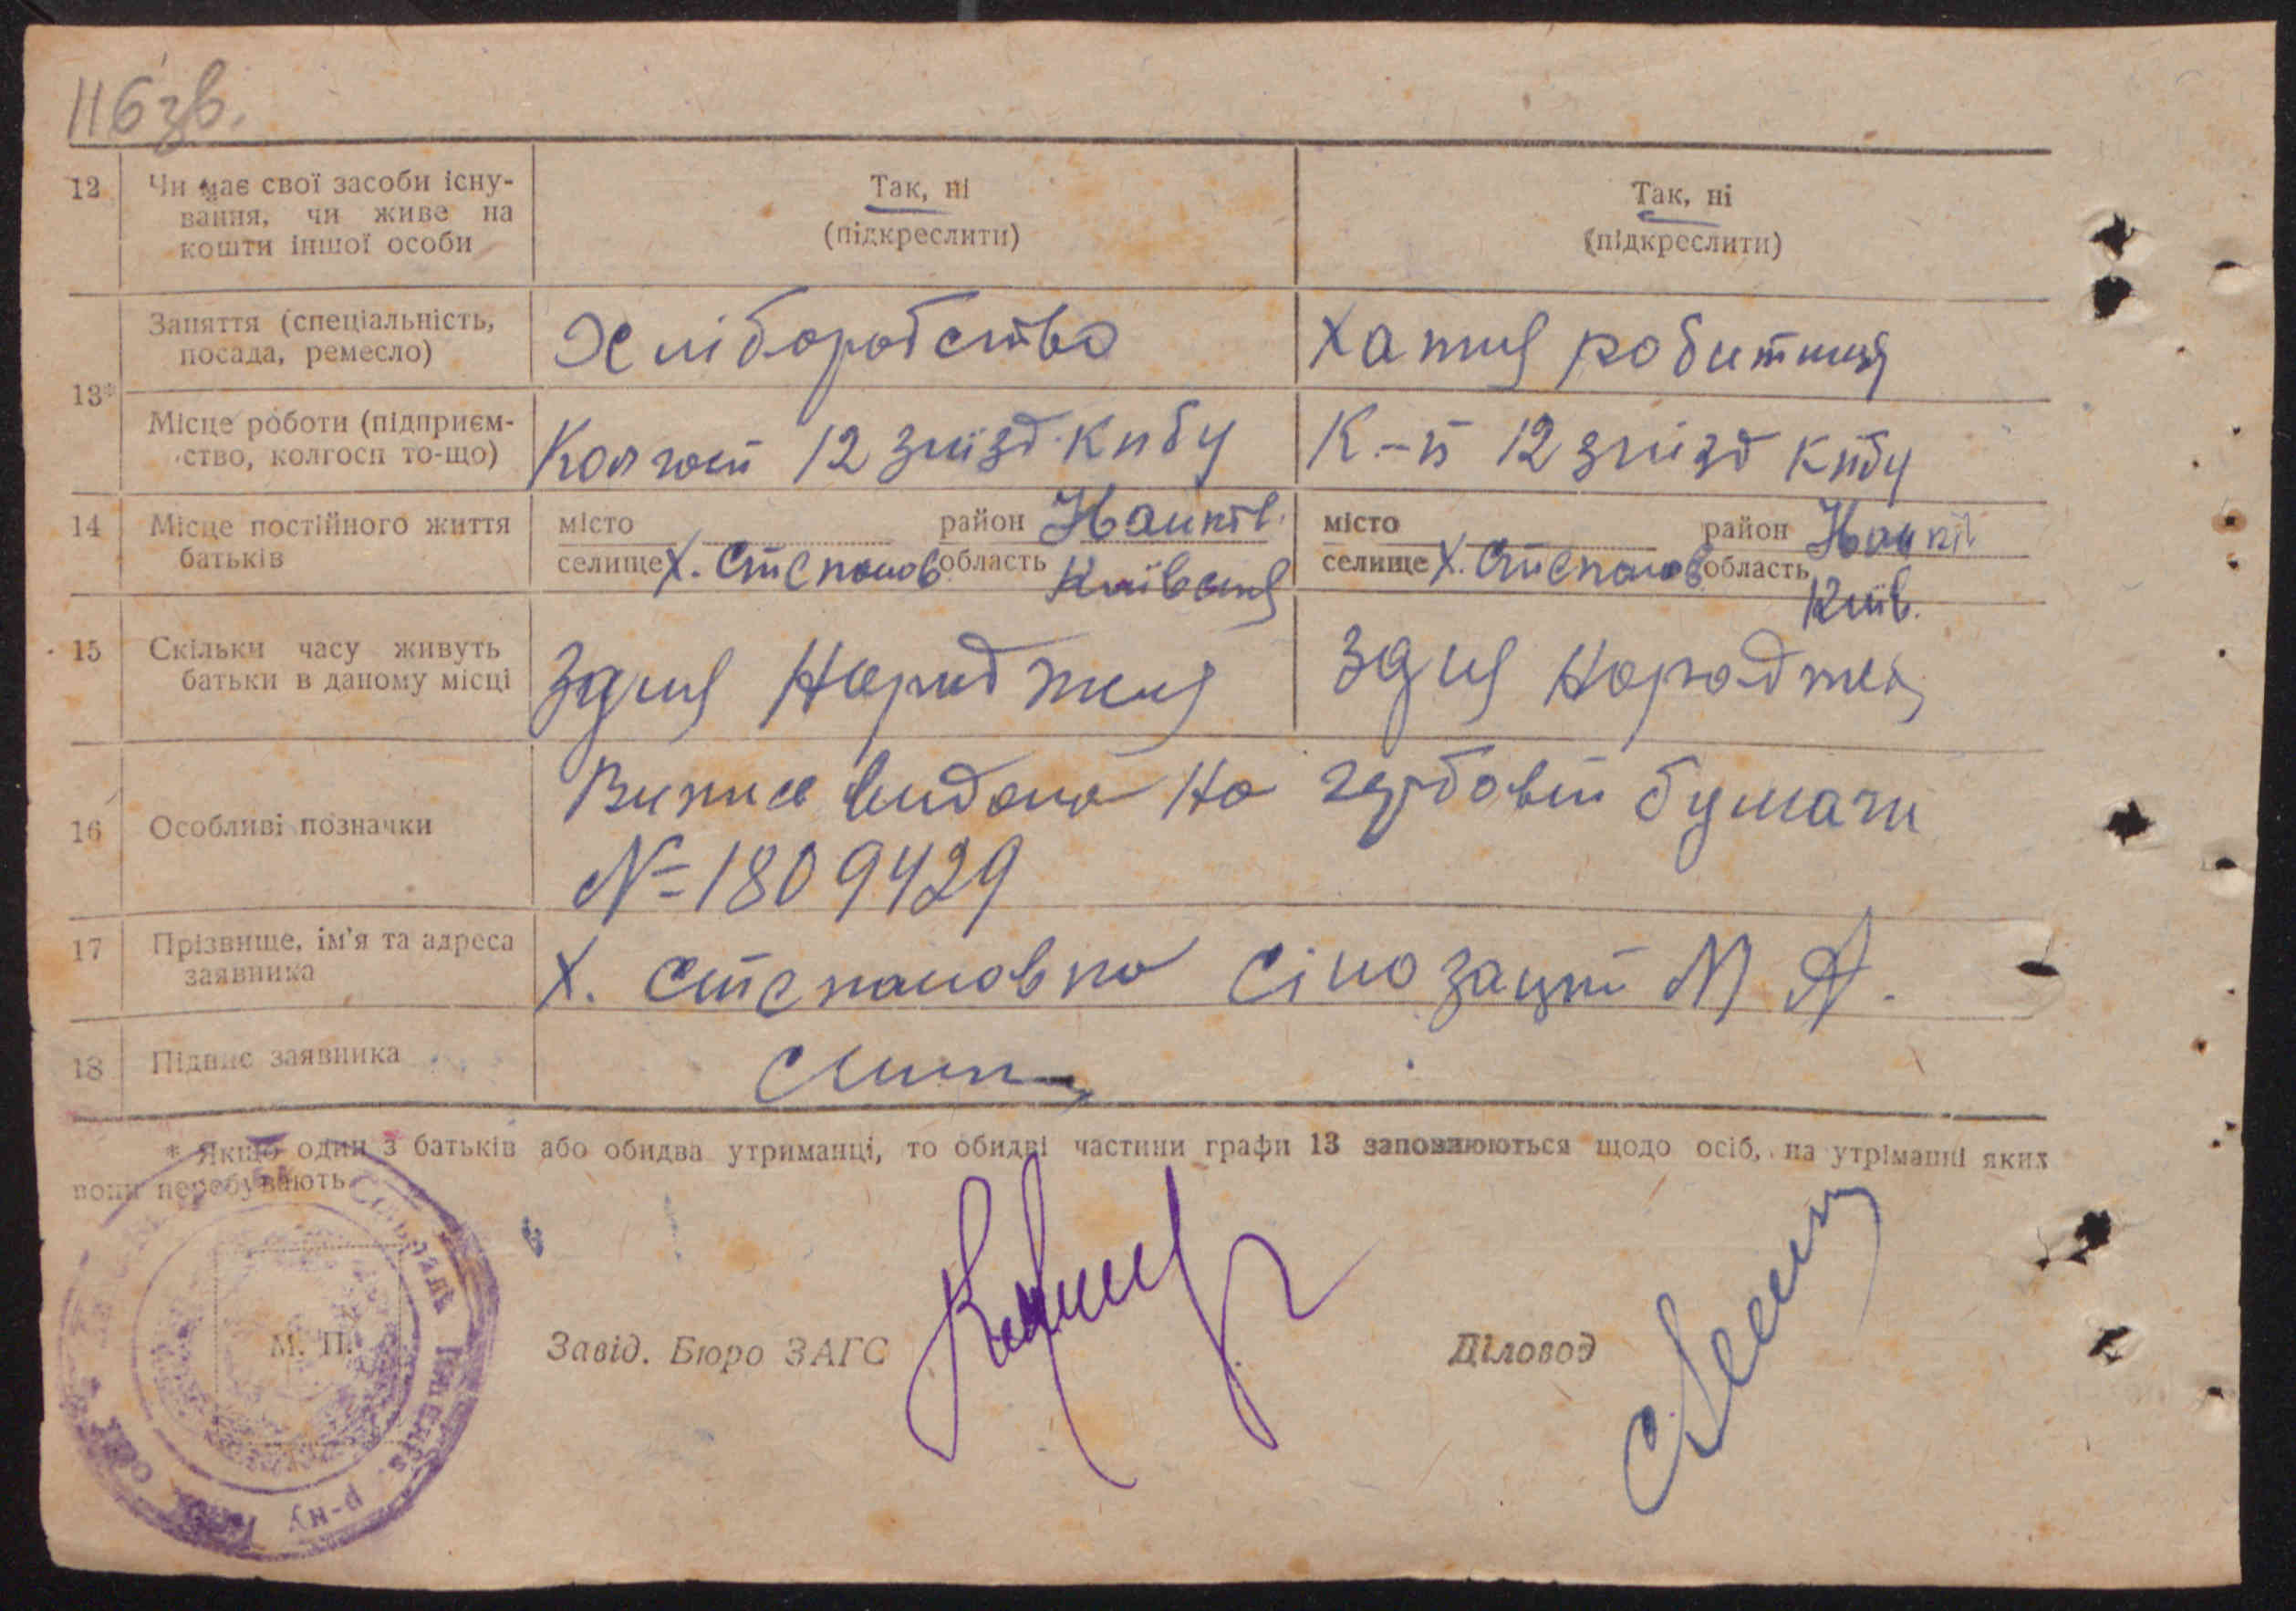 116 зв.
12 Чи має свої засоби існу- Так, ні Так, ні
вання, чи живе на (підкреслити) (підкреслити)
кошти іншої особи
13* Заняття (спеціальність, Хліборобство Хатня робитниця
посада, ремесло)
Місце роботи (підприєм- Колгосп 12 зїїзд кпбу К-п 12 зїїзд кпбу
ство, колгосп то-що)
14 Місце постійного життя місто район місто район
батьків селище Х. Степанов область Київська селище Х. Степанов область Київ.
15 Скільки часу живуть Здня Народження Здня Народжен
батьки в даному місці
16 Особливі позначки Випис видана на гербовій бумаги
№ 1809429
17 Прізвище, ім'я та адреса Х. Степановка М А.
заявника
18 Підпис заявника
* Якщо один з батьків або обидва утриманці, то обидві частини графи 13 заповнюються щодо осіб, на утріманні яких
вони перебувають.
М. П. Завід. Бюро ЗАГС Діловод
р-ну